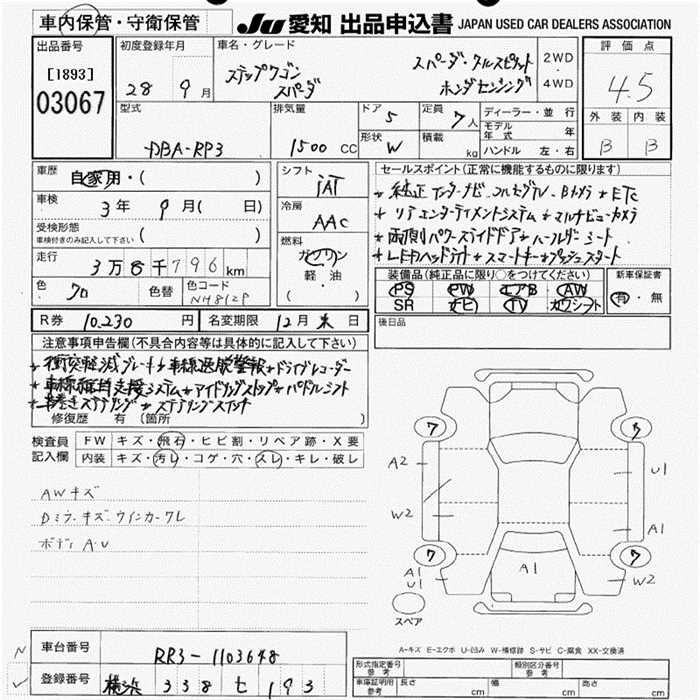 車内保管・守衛保管
JU 愛知 出品申込書 JAPAN USED CAR DEALERS ASSOCIATION
出品番号
[1893]
03067
初度登録年月
28 9月
車名・グレード
ステップワゴン スパーダ・クールスピリット
スパーダ ホンダセンシング
2WD
4WD
評価点
4.5
外装 内装
B B
型式
DBA-RP3
排気量
1500 CC
ドア 5
形状 W
定員 7人
積載 kg
ディーラー・並行
モデル年式 年
ハンドル 左・右
車歴 自家用・( )
車検 3年 9月( 日)
受検形態
車検付きのみ記入して下さい ( )
走行 3万8千796km
色 クロ 色替 色コード NH812P
シフト
IAT
冷房
AAC
燃料
ガソリン
軽・油
( )
セールスポイント(正常に機能するものに限ります)
+ 純正インターナビ、フルセグTV、Bカメラ + ETC
+ リアエンターテイメントシステム + マルチビューカメラ
+ 両側パワースライドドア + ハーフレザーシート
+ LEDヘッドライト + スマートキー + プッシュスタート
装備品(純正品に限り○をつけてください)
PS PW エアB AW
SR ナビ TV カワシート
新車保証書
有・無
R券 10.230 円 名変期限 12月末日
後日品
注意事項申告欄(不具合内容等は具体的に記入して下さい)
+ 衝突軽減ブレーキ + 車線逸脱警報 + ドライブレコーダー
+ 車線維持支援システム + アイドリングストップ + パドルシフト
+ 本巻きステアリング + ステアリングスイッチ
修復歴 有 〔箇所 〕
検査員
記入欄
FW キズ・飛石・ヒビ割・リペア跡・X要
内装 キズ・汚レ・コゲ・穴・スレ・キレ・破レ
AWキズ
Dミラーキズ・ウインカーワレ
ボディ A・U
7 7
A2 U1
W2 A1
7 7
A1
U1 A1 W2
スペア
A-キズ E-エクボ U-凹み W-補修跡 S-サビ C-腐食 XX-交換済
車台番号 RP3-1103648
登録番号 横浜 338 セ 193
形式指定番号 参考
類別区分番号 参考
車庫証明用 参考 長さ cm 幅 cm 高さ cm
N